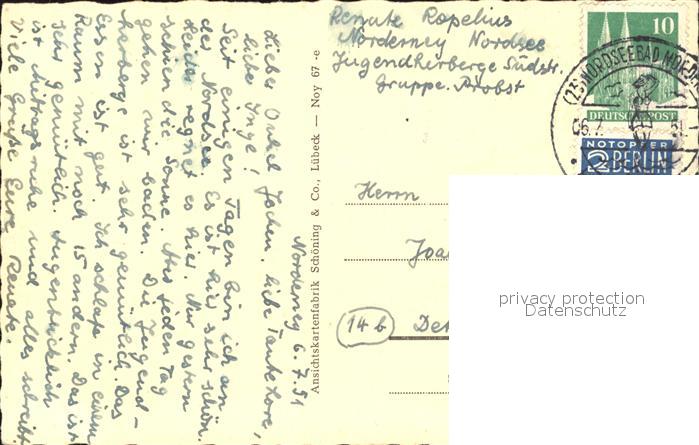 Norderney 6.7.51
Lieber Onkel Jochen, liebe Tante Lore,
liebe Inge!
Seit einigen Tagen bin ich an
der Nordsee. Es ist hier sehr schön.
Leider regnet es hier. Nur gestern
schien die Sonne. Aber jeden Tag
gehen wir baden. Die Jugend-
herberge ist sehr gemütlich. Das
Essen ist gut. Ich schlafe in einem
Raum mit noch 15 andern. Das ist
sehr gemütlich. Augenblicklich
ist Mittagsruhe und alles schreibt.
Viele Grüße Eure Renate.
Ansichtskartenfabrik Schöning & Co., Lübeck — Noy 67 -e
Renate Ropelius
Norderney Nordsee
Jugendherberge Südstr.
Gruppe. Probst
10
DEUTSCHE POST
NORDSEEBAD
NOTOPFER
2 BERLIN
Herrn
(14b)
privacy protection
Datenschutz